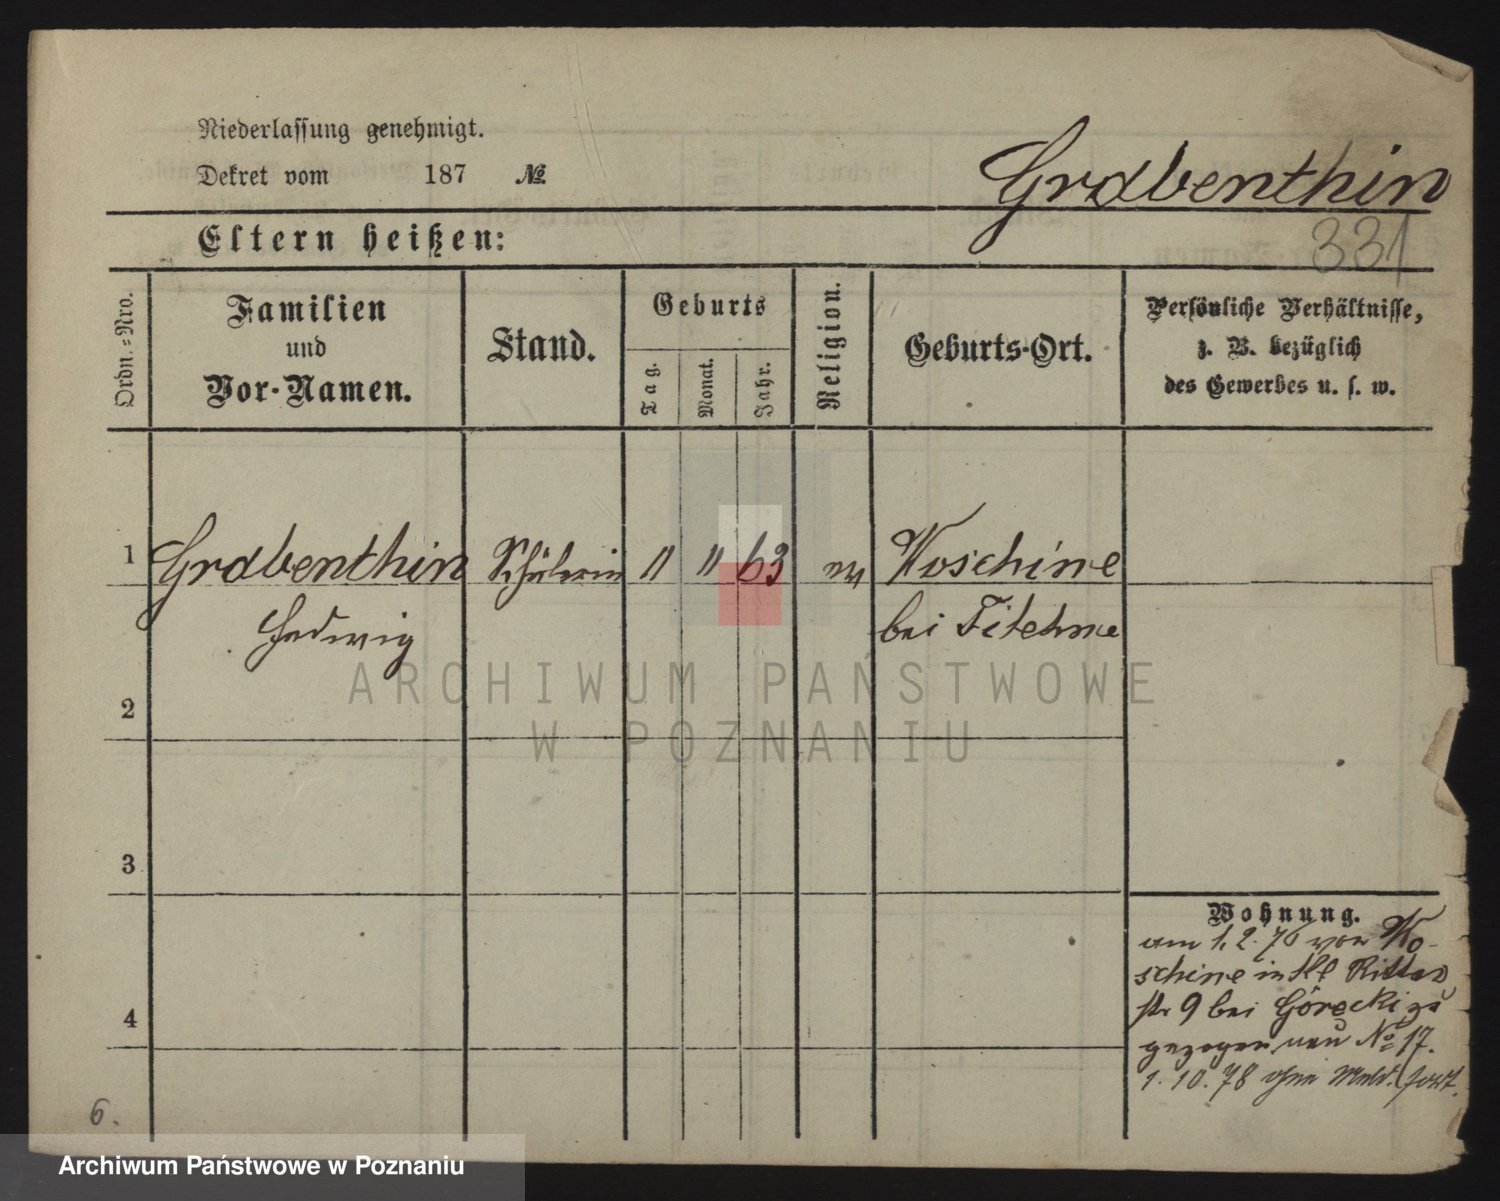 Niederlassung genehmigt.
Dekret vom 187 №
Grabenthin
331
Eltern heißen:
Ordn.=Nro.
Familien
und
Vor-Namen.
Stand.
Geburts
Tag.
Monat.
Jahr.
Religion.
Geburts-Ort.
Persönliche Verhältnisse,
z. B. bezüglich
des Gewerbes u. s. w.
1 Grabenthin Schülerin " " 63 ev Woschine
Hedwig bei Filehne
2
3
4
Wohnung.
am 1.2.76 von Wo-
schine in Kl Ritter
str 9 bei Górecki zu
gezogen neu No 17.
1.10.78 ohne Meld. fort.
6.
ARCHIWUM PAŃSTWOWE
W POZNANIU
Archiwum Państwowe w Poznaniu